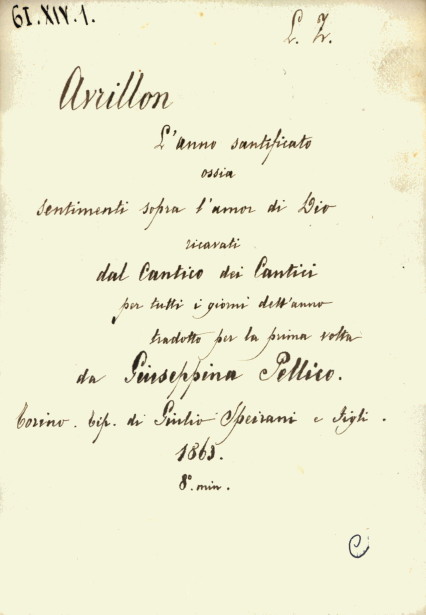 61.XIV.1.
L. Z.
Avrillon
L'anno santificato
ossia
sentimenti sopra l'amor di Dio
ricavati
dal Cantico dei Cantici
per tutti i giorni dell'anno
tradotto per la prima volta
da Giuseppina Pellico.
Torino. Tip. di Giulio Speirani e figli.
1863.
8.° min.
C